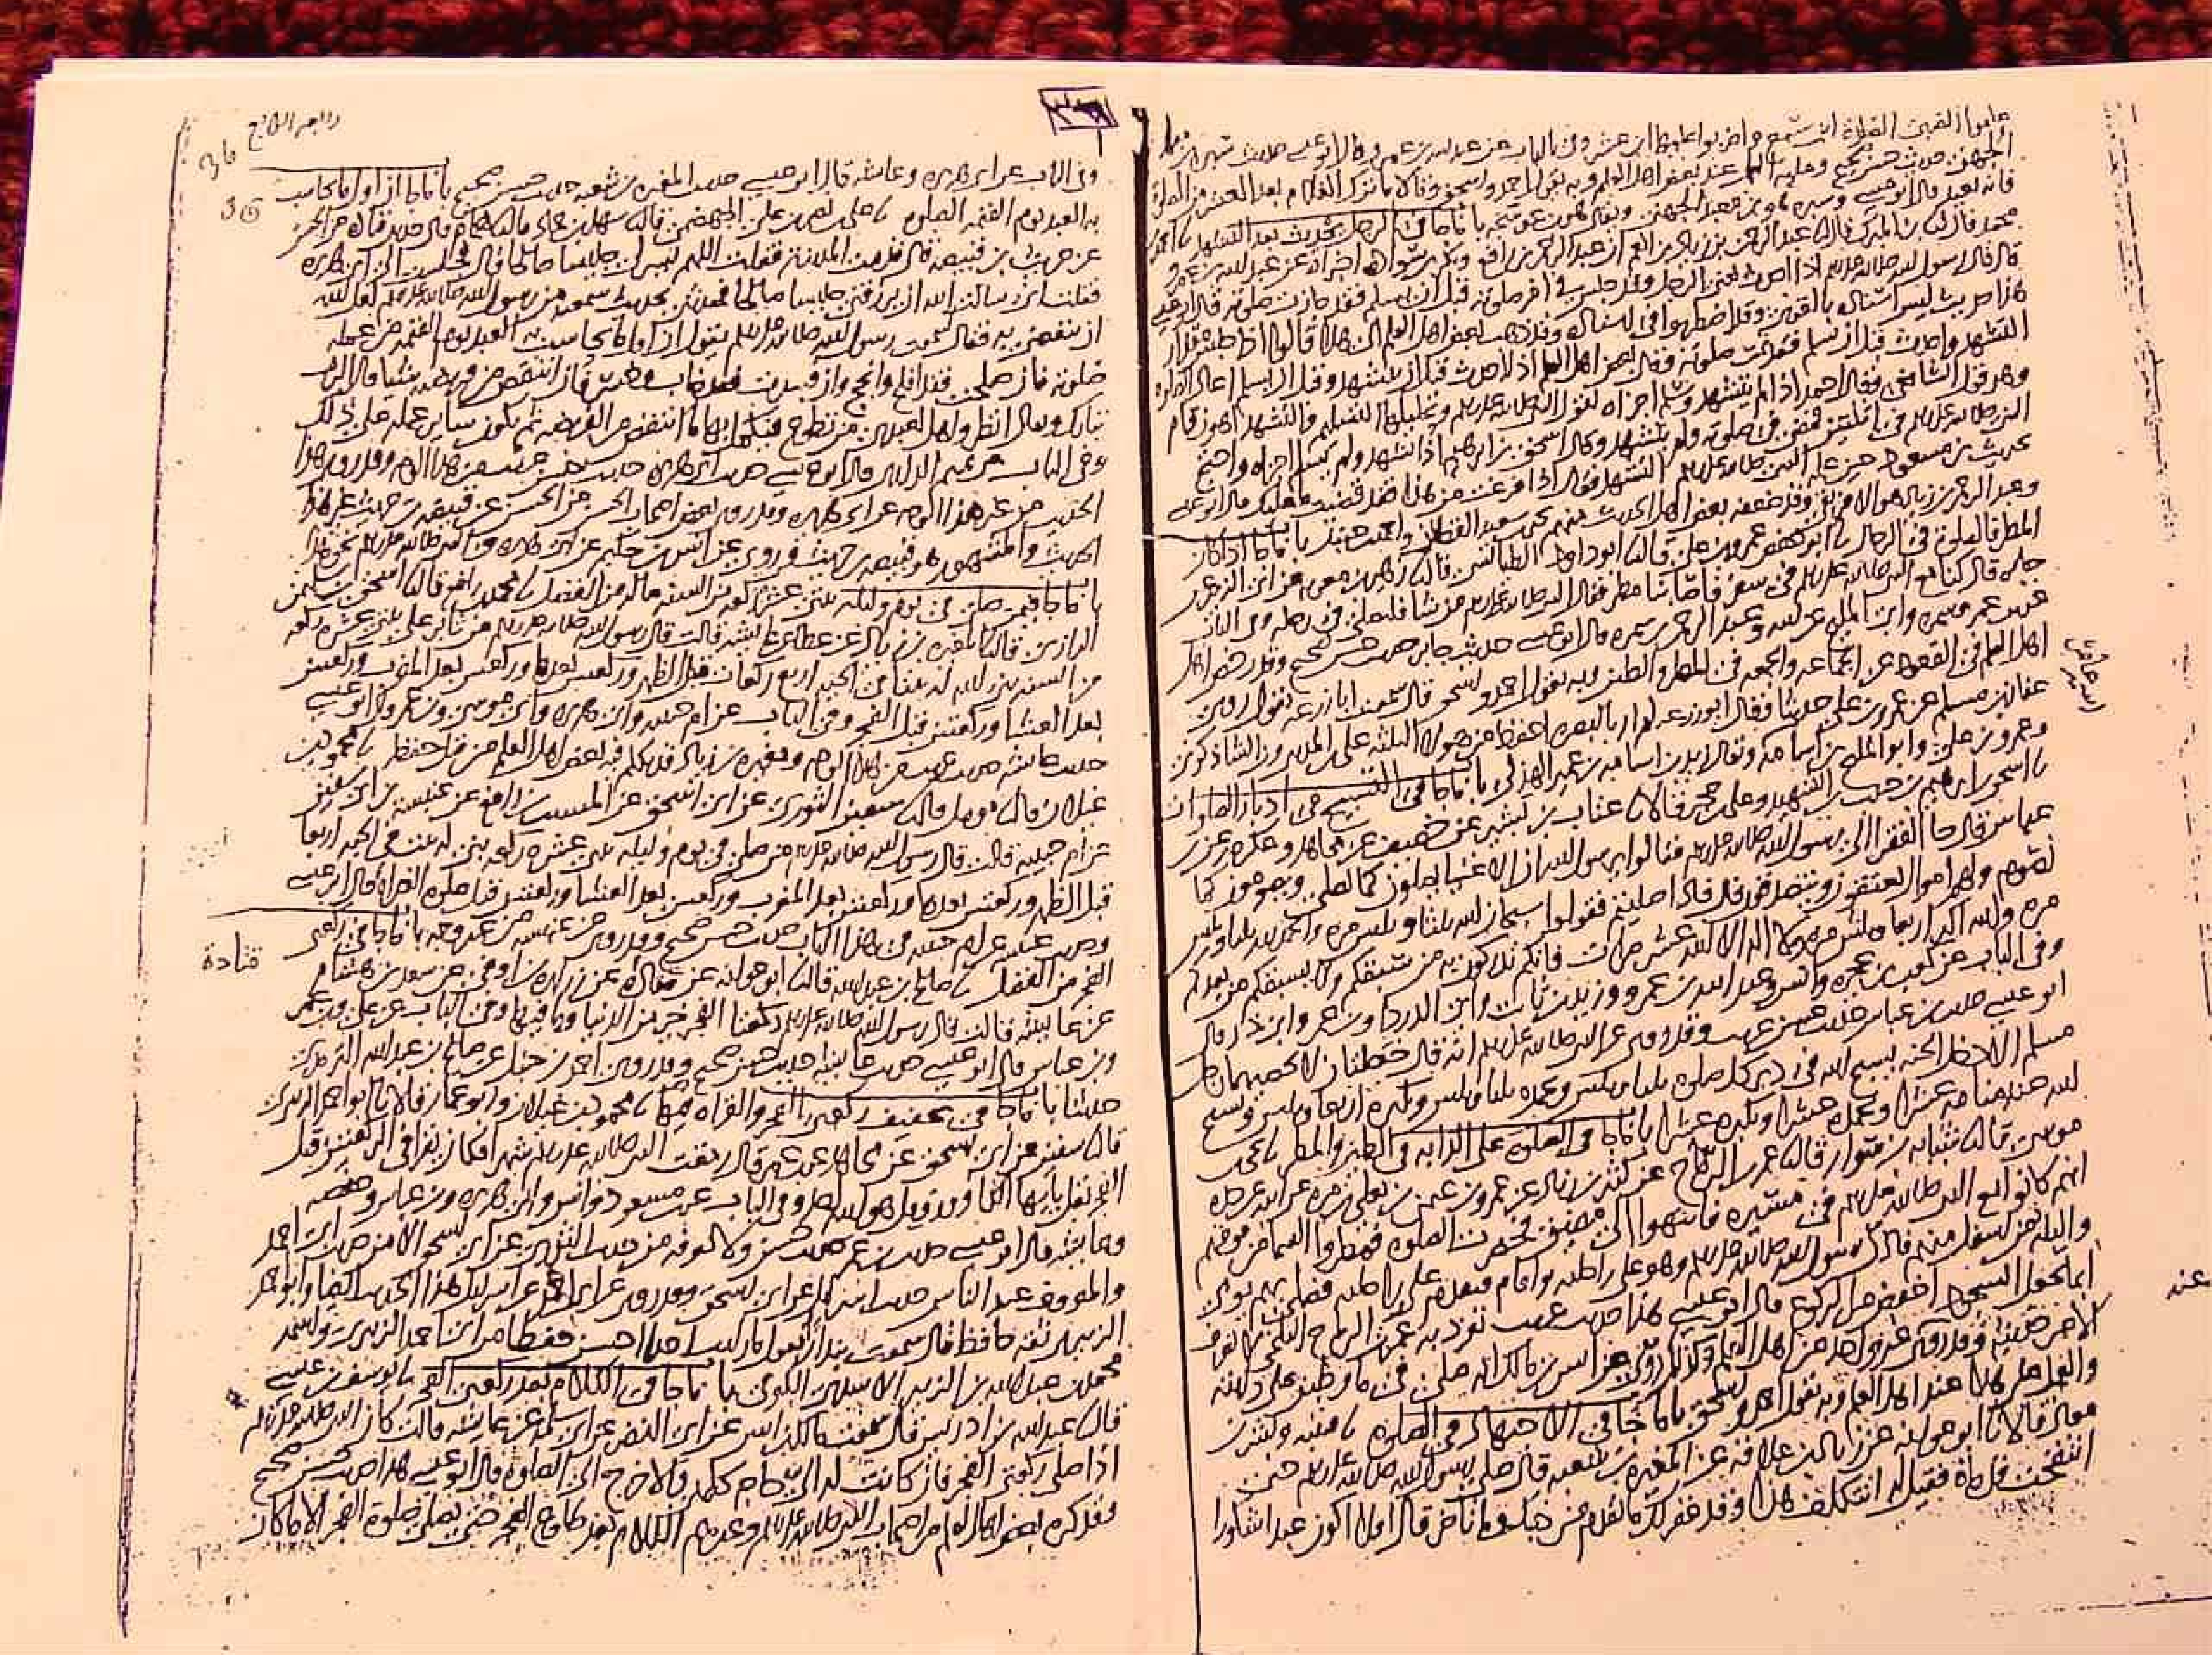 علموا الصبي الصلاة ابن سبع واضربوا عليها ابن عشر وفي الباب عن عبد الله بن عمرو قال ابو عيسى حديث سبرة بن معبد
الجهني حديث حسن صحيح وعليه العمل عند بعض اهل العلم وبه يقول احمد واسحق وقالا ما ترك الغلام بعد العشر من الصلاة
فانه يعيد قال ابو عيسى وسبرة هو بن معبد الجهني ويقال هو بن عوسجة باب ما جا في الرجل يحدث بعد التشهد نا احمد بن
محمد قال نا بن المبرك قال نا عبد الرحمن بن زياد بن انعم ان عبد الرحمن بن رافع وبكر بن سوادة اخبراه عن عبد الله بن عمرو
قال قال رسول الله صلى الله عليه وسلم اذا احدث يعني الرجل وقد جلس في اخر صلوته قبل ان يسلم فقد جازت صلوته قال ابو عيسى
هذا حديث ليس اسناده بالقوي وقد اضطربوا في اسناده وقد ذهب بعض اهل العلم الى هذا قالوا اذا جلس مقدار
التشهد واحدث قبل ان يسلم فقد تمت صلوته وقال بعض اهل العلم اذا احدث قبل ان يتشهد وقبل ان يسلم اعاد الصلوة
وهو قول الشافعي وقال احمد اذا لم يتشهد وسلم اجزاه لقول النبي صلى الله عليه وسلم وتحليلها التسليم والتشهد اهون قام
النبي صلى الله عليه وسلم في اثنتين فمضى في صلوته ولم يتشهد وقال اسحق بن ابرهيم اذا تشهد ولم يسلم اجزاه واحتج
بحديث بن مسعود حين علمه النبي صلى الله عليه وسلم التشهد فقال اذا فرغت من هذا فقد قضيت ما عليك قال ابو عيسى
وعبد الرحمن بن زياد هو الافريقي وقد ضعفه بعض اهل الحديث منهم يحيى بن سعيد القطان واحمد بن حنبل باب ما جا اذا كان
المطر فالصلوة في الرحال نا ابو حفص عمرو بن علي قال نا ابو داود الطيالسي قال نا زهير بن معوية عن ابي الزبير عن
جابر قال كنا مع النبي صلى الله عليه وسلم في سفر فاصابنا مطر فقال النبي صلى الله عليه وسلم من شا فليصل في رحله وفي الباب
عن بن عمر وسمرة وابي المليح عن ابيه وعبد الرحمن بن سمرة قال ابو عيسى حديث جابر حديث حسن صحيح وقد رخص اهل
اهل العلم في القعود عن الجماعة والجمعة في المطر والطين وبه يقول احمد واسحق قال سمعت ابا زرعة يقول روى
عفان بن مسلم عن عمرو بن علي حديثا وقال ابو زرعة لم ار بالبصرة احفظ من هولا الثلثة علي بن المديني وبن الشاذكوني
وعمرو بن علي وابو المليح بن اسامة ويقال زيد بن اسامة بن عمير الهذلي باب ما جا في التسبيح في ادبار الصلوات
نا اسحق بن ابرهيم بن حبيب بن الشهيد وعلي بن حجر قالا نا عتاب بن بشير عن خصيف عن مجاهد وعكرمة عن بن
عباس قال جا الفقرا الى رسول الله صلى الله عليه وسلم فقالوا يرسول الله ان الاغنيا يصلون كما نصلي ويصومون كما
نصوم ولهم اموال يعتقون ويتصدقون قال فاذا صليتم فقولوا سبحان الله ثلثا وثلثين مرة والحمد لله ثلثا وثلثين
مرة والله اكبر اربعا وثلثين مرة ولا اله الا الله عشر مرات فانكم تدركون به من سبقكم ولا يسبقكم من بعدكم
وفي الباب عن كعب بن عجرة وانس وعبد الله بن عمرو وزيد بن ثابت وابي الدردا وبن عمر وابي ذر قال
ابو عيسى حديث بن عباس حديث حسن غريب وقد روي عن النبي صلى الله عليه وسلم انه قال خصلتان لا يحصيهما رجل
مسلم الا دخل الجنة يسبح الله في دبر كل صلوة ثلثا وثلثين ويحمده ثلثا وثلثين ويكبره اربعا وثلثين ويسبح
الله عند منامه عشرا ويحمده عشرا ويكبره عشرا باب ما جا في الصلوة على الدابة في الطين والمطر نا يحيى بن
موسى قال نا شبابة بن سوار قال نا عمر بن الرماح عن كثير بن زياد عن عمرو بن عثمن بن يعلى بن مرة عن ابيه عن جده
انهم كانوا مع النبي صلى الله عليه وسلم في مسيره فانتهوا الى مضيق فحضرت الصلوة فمطروا السما من فوقهم
والبلة من اسفل منهم فاذن رسول الله صلى الله عليه وسلم وهو على راحلته واقام فتقدم على راحلته فصلى بهم يومي
ايما يجعل السجود اخفض من الركوع قال ابو عيسى هذا حديث غريب تفرد به عمر بن الرماح البلخي لا يعرف
الا من حديثه وقد روى عنه غير واحد من اهل العلم وكذلك روي عن انس بن مالك انه صلى في ما وطين على دابته
والعمل على هذا عند اهل العلم وبه يقول احمد واسحق باب ما جا في الاجتهاد في الصلوة نا قتيبة وبشر بن
معاذ قالا نا ابو عوانة عن زياد بن علاقة عن المغيرة بن شعبة قال صلى رسول الله صلى الله عليه وسلم حتى
انتفخت قدماه فقيل له اتتكلف هذا وقد غفر لك ما تقدم من ذنبك وما تاخر قال افلا اكون عبدا شكورا
عند
وفي الباب عن ابي هريرة وعايشة قال ابو عيسى حديث المغيرة بن شعبة حديث حسن صحيح باب ما جا ان اول ما يحاسب
به العبد يوم القيمة الصلوة نا علي بن نصر بن علي الجهضمي قال نا سهل بن حماد قال نا همام قال حدثني قتادة عن الحسن
عن حريث بن قبيصة قال قدمت المدينة فقلت اللهم يسر لي جليسا صالحا قال فجلست الى ابي هريرة
فقلت اني سالت الله ان يرزقني جليسا صالحا فحدثني بحديث سمعته من رسول الله صلى الله عليه وسلم لعل الله
ان ينفعني به فقال سمعت رسول الله صلى الله عليه وسلم يقول ان اول ما يحاسب به العبد يوم القيمة من عمله
صلوته فان صلحت فقد افلح وانجح وان فسدت فقد خاب وخسر فان انتقص من فريضته شيا قال الرب
تبارك وتعالى انظروا هل لعبدي من تطوع فيكمل بها ما انتقص من الفريضة ثم يكون ساير عمله على ذلك
وفي الباب عن تميم الداري قال ابو عيسى حديث ابي هريرة حديث حسن غريب من هذا الوجه وقد روي هذا
الحديث من غير هذا الوجه عن ابي هريرة وقد روى بعض اصحاب الحسن عن الحسن عن قبيصة بن حريث غير هذا
الحديث والمشهور هو قبيصة بن حريث وروي عن انس بن حكيم عن ابي هريرة عن النبي صلى الله عليه وسلم نحو هذا
باب ما جا فيمن صلى في يوم وليلة ثنتي عشرة ركعة من السنة ماله من الفضل نا محمد بن رافع قال نا اسحق بن سليمن
الرازي قال نا المغيرة بن زياد عن عطا عن عايشة قالت قال رسول الله صلى الله عليه وسلم من ثابر على ثنتي عشرة ركعة
من السنة بنى الله له بيتا في الجنة اربع ركعات قبل الظهر وركعتين بعدها وركعتين بعد المغرب وركعتين
بعد العشا وركعتين قبل الفجر وفي الباب عن ام حبيبة وابي هريرة وابي موسى وبن عمر قال ابو عيسى
حديث عايشة حديث غريب من هذا الوجه ومغيرة بن زياد قد تكلم فيه بعض اهل العلم من قبل حفظه نا محمود بن
غيلان قال نا مومل قال نا سفين الثوري عن ابي اسحق عن المسيب بن رافع عن عنبسة بن ابي سفين
عن ام حبيبة قالت قال رسول الله صلى الله عليه وسلم من صلى في يوم وليلة ثنتي عشرة ركعة بني له بيت في الجنة اربعا
قبل الظهر وركعتين بعدها وركعتين بعد المغرب وركعتين بعد العشا وركعتين قبل صلوة الغداة قال ابو عيسى
وحديث عنبسة عن ام حبيبة في هذا الباب حديث حسن صحيح وقد روي عن عنبسة من غير وجه باب ما جا في ركعتي
الفجر من الفضل نا صالح بن عبد الله قال نا ابو عوانة عن قتادة عن زرارة بن اوفى عن سعد بن هشام
قتادة
عن عايشة قالت قال رسول الله صلى الله عليه وسلم ركعتا الفجر خير من الدنيا وما فيها وفي الباب عن علي وبن عمر
وبن عباس قال ابو عيسى حديث عايشة حديث حسن صحيح وقد روى احمد بن حنبل عن صالح بن عبد الله الترمذي
حديثا باب ما جا في تخفيف ركعتي الفجر والقراة فيها نا محمود بن غيلان وابو عمار قالا نا ابو احمد الزبيري
قال نا سفين عن ابي اسحق عن مجاهد عن بن عمر قال رمقت النبي صلى الله عليه وسلم شهرا فكان يقرا في الركعتين قبل
الفجر بقل يايها الكافرون وقل هو الله احد وفي الباب عن بن مسعود وانس وابي هريرة وبن عباس وحفصة
وعايشة قال ابو عيسى حديث بن عمر حديث حسن ولا نعرفه من حديث الثوري عن ابي اسحق الا من حديث ابي احمد
والمعروف عند الناس حديث اسرائيل عن ابي اسحق وقد روي عن ابي احمد عن اسرائيل هذا الحديث ايضا وابو احمد
الزبيري ثقة حافظ قال سمعت بندارا يقول ما رايت احدا احسن حفظا من ابي احمد الزبيري واسمه
محمد بن عبد الله بن الزبير الاسدي الكوفي باب ما جا في الكلام بعد ركعتي الفجر نا يوسف بن عيسى
قال نا عبد الله بن ادريس قال سمعت مالك بن انس عن ابي النضر عن ابي سلمة عن عايشة قالت كان النبي صلى الله عليه وسلم
اذا صلى ركعتي الفجر فان كانت له الي حاجة كلمني والا خرج الى الصلوة قال ابو عيسى هذا حديث حسن صحيح
وقد كره بعض اهل العلم من اصحاب النبي صلى الله عليه وسلم وغيرهم الكلام بعد طلوع الفجر حتى يصلي صلوة الفجر الا ما كان